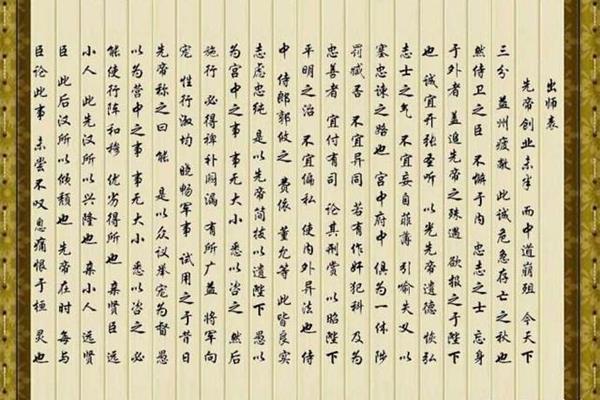 出师表
先帝创业未半 而中道崩殂 今天下
三分 益州疲敝 此诚危急存亡之秋也
然侍卫之臣 不懈于内 忠志之士 忘身
于外者 盖追先帝之殊遇 欲报之于陛下
也 诚宜开张圣听 以光先帝遗德 恢弘
志士之气 不宜妄自菲薄 引喻失义 以
塞忠谏之路也 宫中府中 俱为一体 陟
罚臧否 不宜异同 若有作奸犯科 及为
忠善者 宜付有司 论其刑赏 以昭陛下
平明之治 不宜偏私 使内外异法也 侍
中 侍郎郭攸之 费依 董允等 此皆良实
志虑忠纯 是以先帝简拔以遗陛下 愚以
为宫中之事 事无大小 悉以咨之 然后
施行 必得裨补阙漏 有所广益 将军向
宠 性行淑均 晓畅军事 试用之于昔日
先帝称之曰能 是以众议举宠为督 愚
以为营中之事 事无大小 悉以咨之 必
能使行阵和穆 优劣得所也 亲贤臣 远
小人 此先汉所以兴隆也 亲小人 远贤
臣 此后汉所以倾颓也 先帝在时 每与
臣论此事 未尝不叹息痛恨于桓 灵也